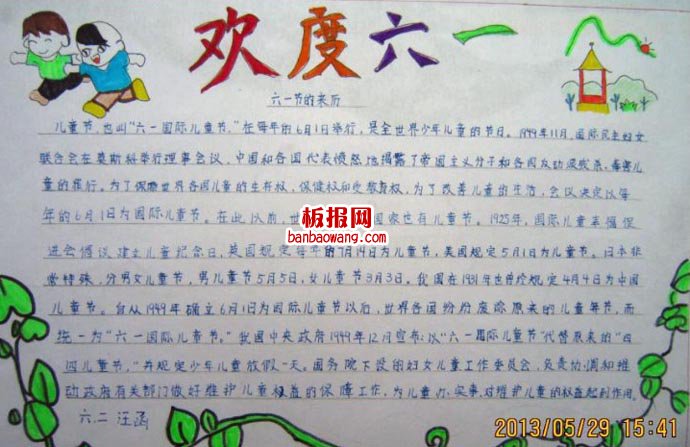 欢度六一
六一节的来历
儿童节,也叫"六一国际儿童节,"在每年的6月1日举行,是全世界少年儿童的节日。1949年11月,国际民主妇女
联合会在莫斯科举行理事会议,中国和各国代表愤怒地揭露了帝国主义分子和各国反动派残杀、毒害儿
童的罪行。为了保障世界各国儿童的生存权,保健权和受教育权,为了改善儿童的生活,会议决定以每
年的6月1日为国际儿童节。在此以前,世 国家也有儿童节。1925年,国际儿童幸福促
进会倡议建立儿童纪念日,英国规定每年的7月14日为儿童节,美国规定5月1日为儿童节。日本非
常特殊,分男女儿童节,男儿童节5月5日,女儿童节3月3日。我国在1931年也曾经规定4月4日为中国
儿童节。自从1949年确立6月1日为国际儿童节以后,世界各国纷纷废除原来的儿童节,而
统一为"六一国际儿童节。"我国中央政府1949年12月宣布:以"六一国际儿童节"代替原来的"四
四儿童节,"并规定少年儿童放假一天。国务院下设的妇女儿童工作委员会,负责协调和推
动政府有关部门做好维护儿童权益的保障工作,为儿童办实事,对维护儿童的权益起到作用。
六、二 汪涵
板报网
banbaowang.com
2013/05/29 15:41